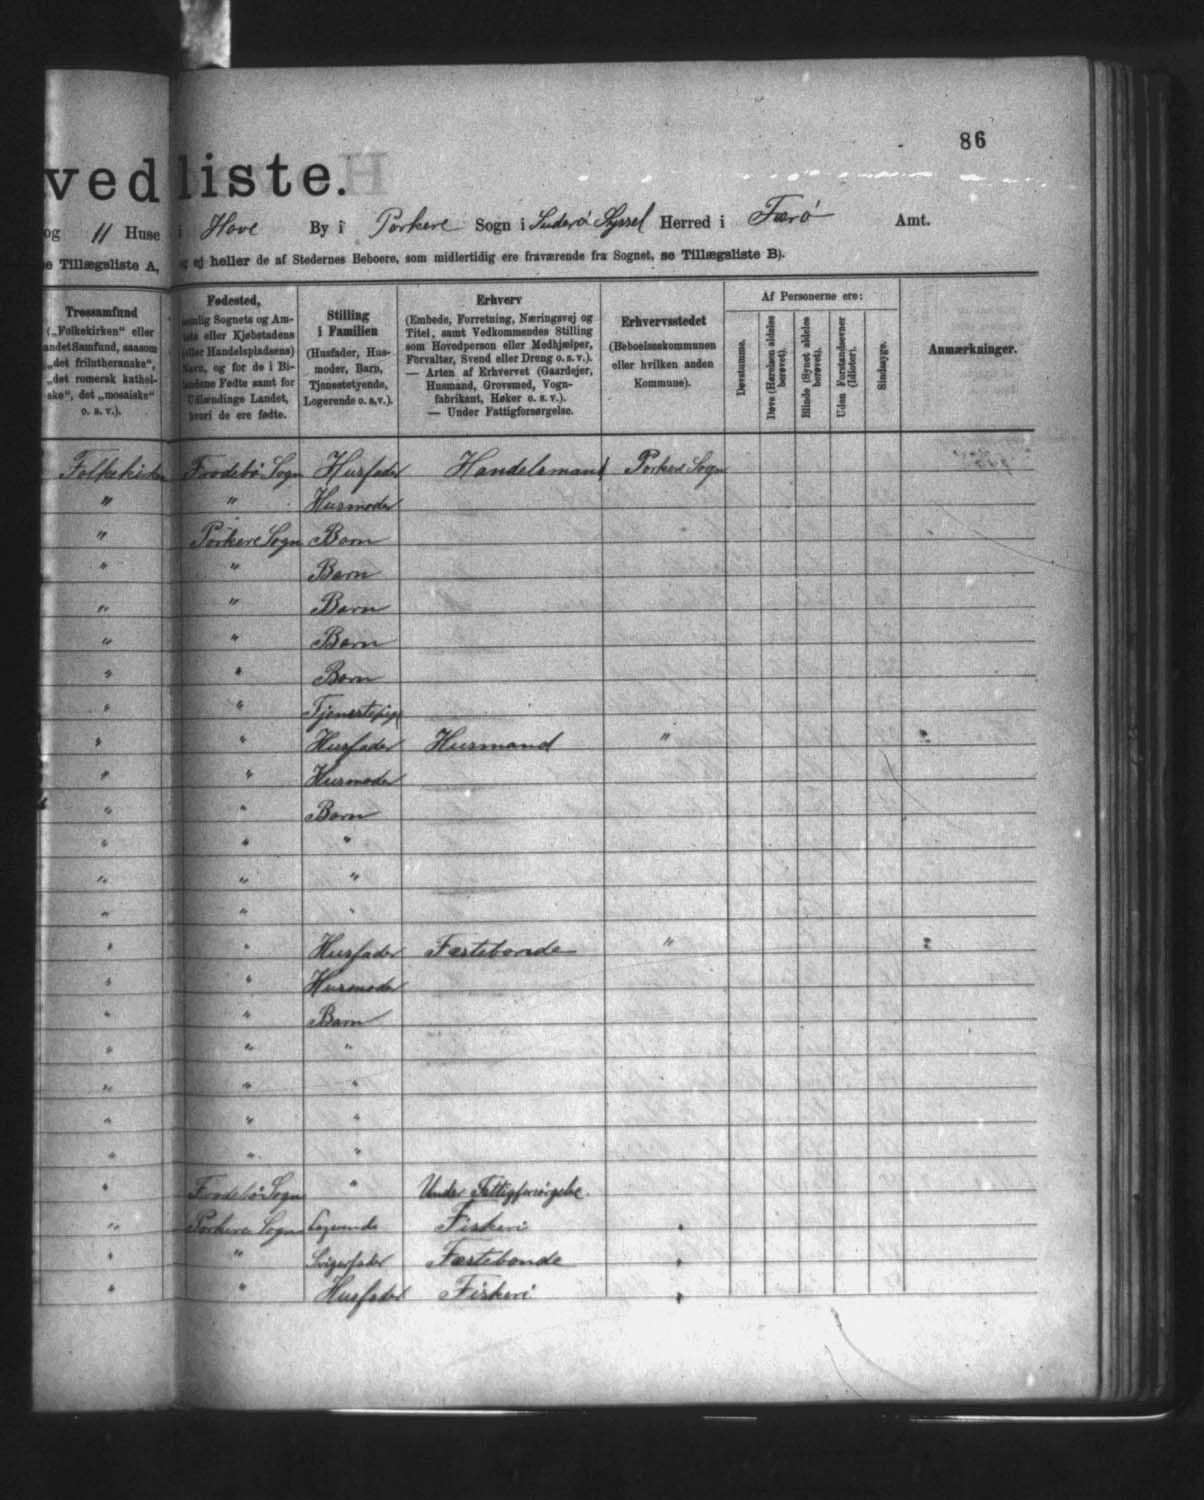 86
vedliste.
og 11 Huse i Hove By i Porkere Sogn i Suderø Syssel Herred i Færø Amt.
e Tillægsliste A, og ej heller de af Stedernes Beboere, som midlertidig ere fraværende fra Sognet, se Tillægsliste B).
Trossamfund
(„Folkekirken“ eller
andet Samfund, saasom
„det frilutheranske“,
„det romersk kathol-
ske“, det „mosaiske“
o. s. v.).
Fødested,
nemlig Sognets og Am-
tets eller Kjøbstadens
(eller Handelspladsens)
Navn, og for de i Bi-
landene Fødte samt for
Udlændinge Landet,
hvori de ere fødte.
Stilling
i Familien
(Husfader, Hus-
moder, Barn,
Tjenestetyende,
Logerende o.s.v.).
Erhverv
(Embede, Forretning, Næringsvej og
Titel, samt Vedkommendes Stilling
som Hovedperson eller Medhjælper,
Forvalter, Svend eller Dreng o. s. v.).
— Arten af Erhvervet (Gaardejer,
Husmand, Grovsmed, Vogn-
fabrikant, Høker o. s. v.).
— Under Fattigforsørgelse.
Erhvervsstedet
(Beboelseskommunen
eller hvilken anden
Kommune).
Af Personerne ere:
Døvstumme.
Døve (Hørelsen aldeles
berøvet).
Blinde (Synet aldeles
berøvet).
Uden Forstandsevner
(Idioter).
Sindssyge.
Anmærkninger.
Folkekirken Frodebø Sogn Husfader Handelsmand Porkere Sogn
" " Husmoder
" Porkere Sogn Barn
" " Barn
" " Barn
" " Barn
" " Barn
" " Tjenestepige
" " Husfader Husmand "
" " Husmoder
" " Barn
" " "
" " "
" " "
" " Husfader Fæstebonde "
" " Husmoder
" " Barn
" " "
" " "
" " "
" " "
" Frodebø Sogn " Under Fattigforsørgelse.
" Porkere Sogn Logerende Fiskeri "
" " Svigerfader Fæstebonde "
" " Husfader Fiskeri "